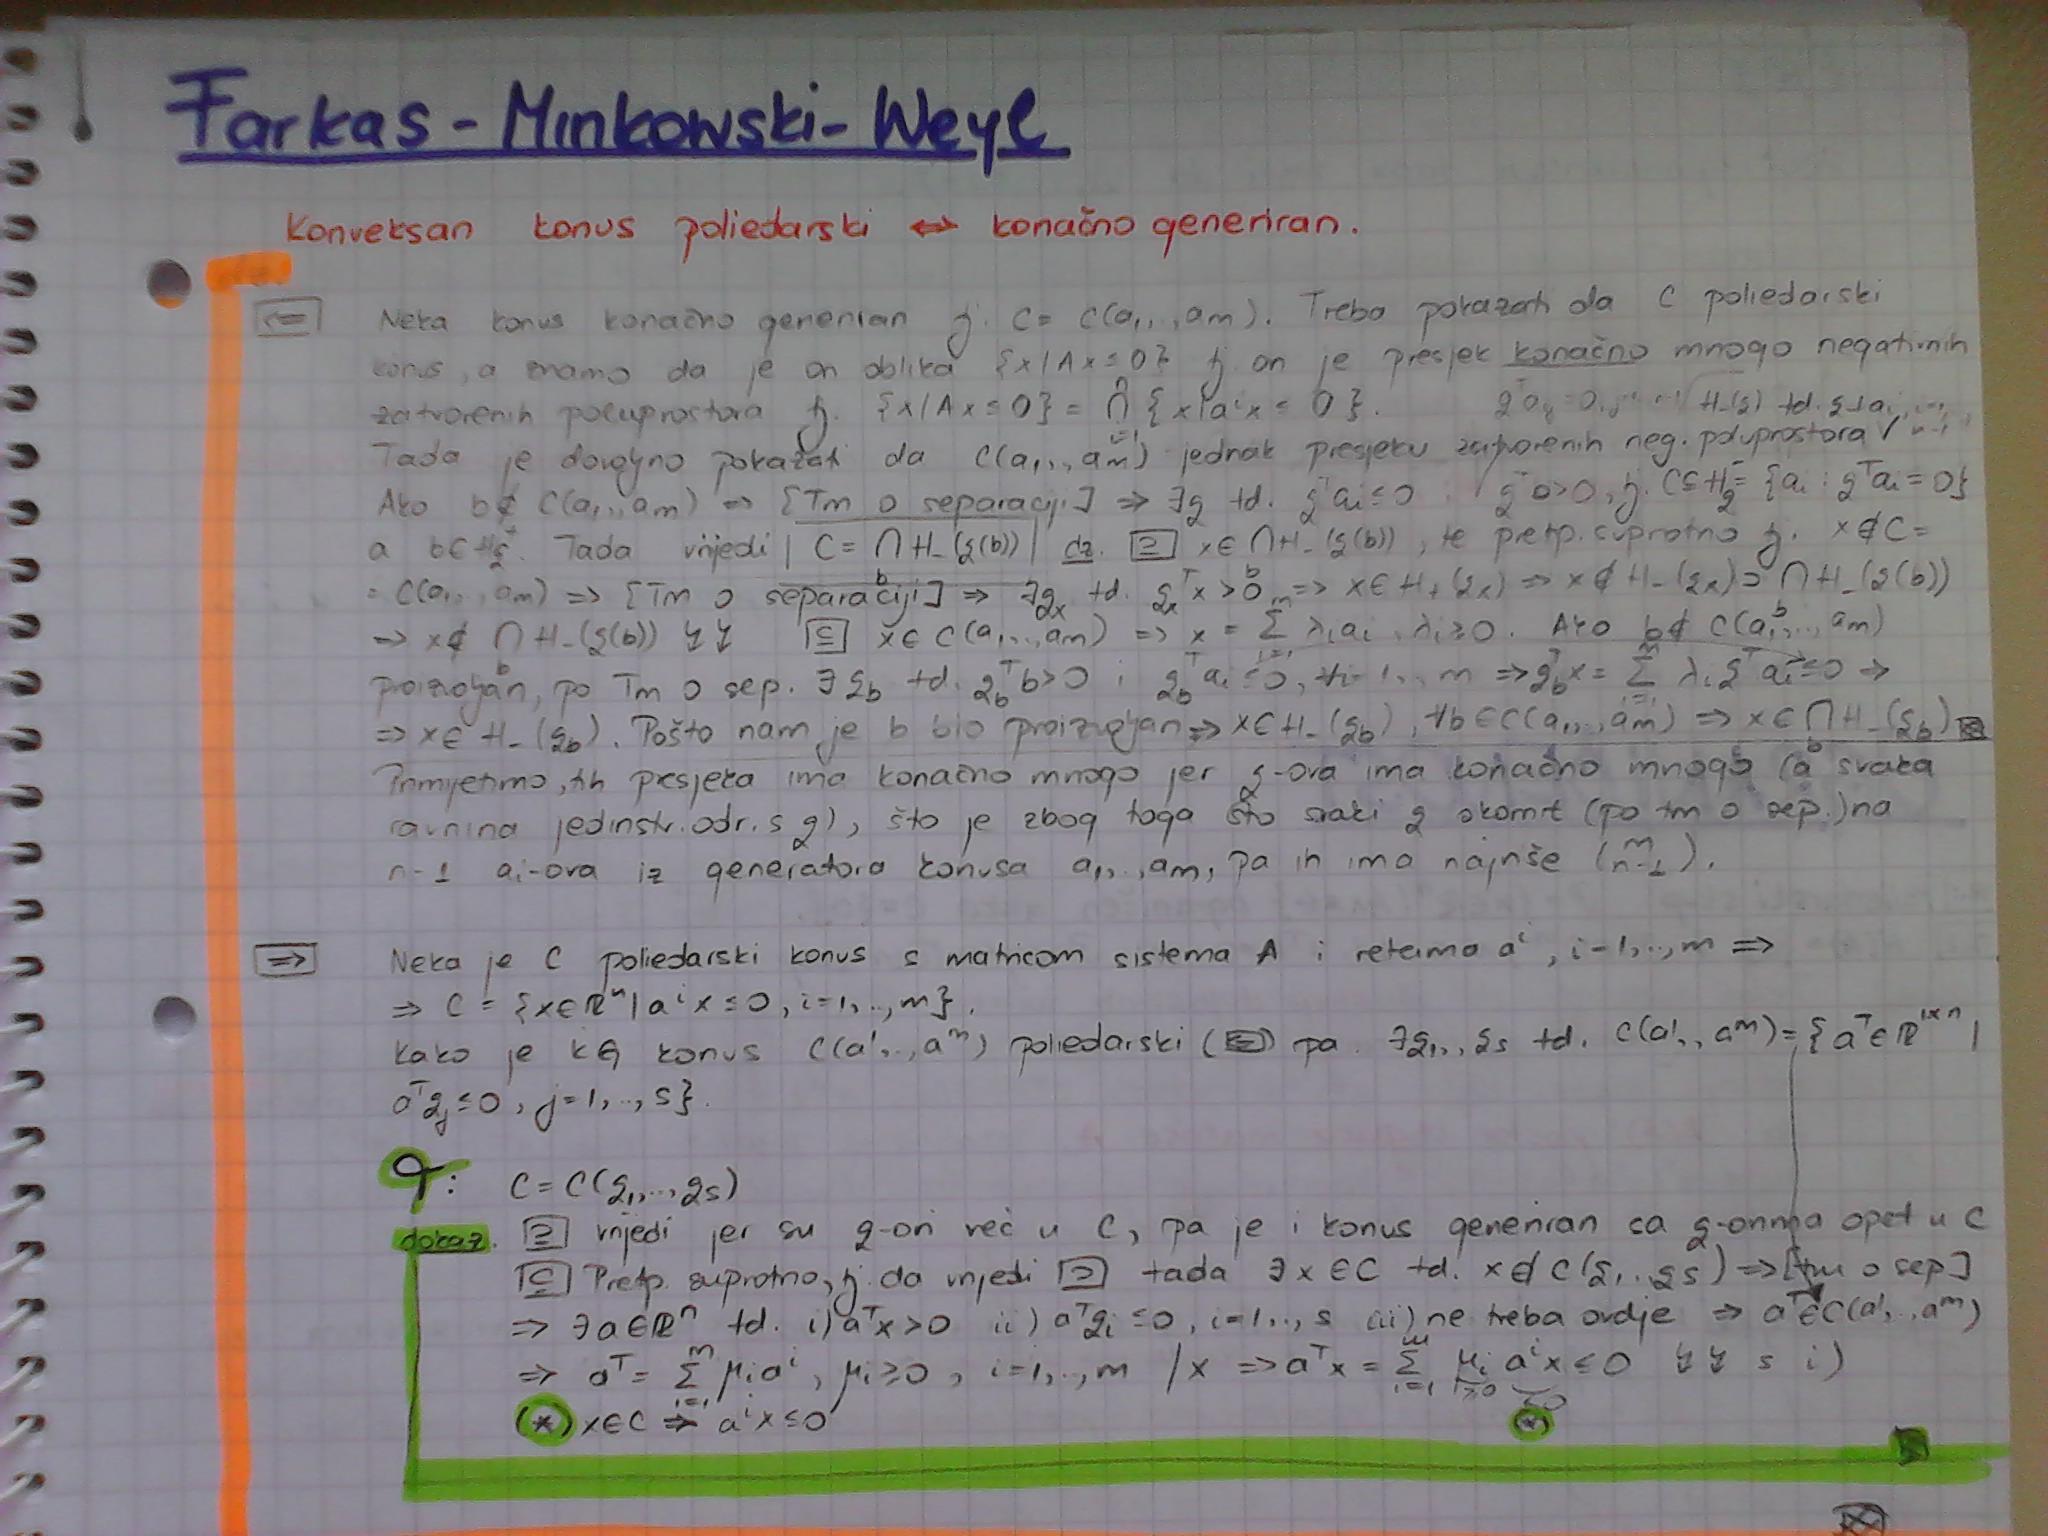 Farkas - Minkowski - Weyl
Konveksan konus poliedarski ⇔ konačno generiran.
⇐ Neka konus konačno generiran tj. C = C(a₁,..,aₘ). Treba pokazati da C poliedarski
konus, a znamo da je on oblika {x | Ax ≤ 0} tj. on je presjek konačno mnogo negativnih
zatvorenih poluprostora tj. {x | Ax ≤ 0} = ∩ {x | aⁱx ≤ 0}. H₋(g) td. g ⊥ aᵢ
Tada je dovoljno pokazati da C(a₁,..,aₘ) jednak presjeku zatvorenih neg. poluprostora
Ako b ∉ C(a₁,..,aₘ) ⇒ [Tm o separaciji] ⇒ ∃g td. gᵀaᵢ ≤ 0 i gᵀb > 0, tj. C ⊆ H₋g = {aᵢ : gᵀaᵢ = 0}
a b ∈ H⁺g. Tada vrijedi | C = ∩ H₋(g(b)) | dz. ⊇ x ∈ ∩ H₋(g(b)), te pretp. suprotno tj. x ∉ C =
= C(a₁,..,aₘ) ⇒ [Tm o separaciji] ⇒ ∃gₓ td. gₓᵀx > 0 ⇒ x ∈ H₊(gₓ) ⇒ x ∉ H₋(gₓ) ⊃ ∩ H₋(g(b))
⇒ x ∉ ∩ H₋(g(b)) ↯↯ ⊆ x ∈ C(a₁,..,aₘ) ⇒ x = Σᵢ₌₁ᵐ λᵢaᵢ, λᵢ ≥ 0. Ako b ∉ C(a₁,..,aₘ)
proizvoljan, po Tm o sep. ∃g_b td. g_bᵀb > 0 i g_bᵀaᵢ ≤ 0, ∀i=1,..,m ⇒ g_bᵀx = Σᵢ₌₁ᵐ λᵢgᵀaᵢ ≤ 0 ⇒
⇒ x ∈ H₋(g_b). Pošto nam je b bio proizvoljan ⇒ x ∈ H₋(g_b), ∀b ∈ C(a₁,..,aₘ) ⇒ x ∈ ∩ H₋(g_b)
Primijetimo, tih presjeka ima konačno mnogo jer g-ova ima konačno mnogo (a svaka
ravnina jedinstv. odr. s g), što je zbog toga što svaki g okomit (po tm o sep.) na
n-1 aᵢ-ova iz generatora konusa a₁,..,aₘ, pa ih ima najviše (m n-1).
⇒ Neka je C poliedarski konus s matricom sistema A i retcima aⁱ, i=1,..,m ⇒
⇒ C = {x ∈ ℝⁿ | aⁱx ≤ 0, i=1,..,m}.
Kako je KG konus C(a¹,..,aᵐ) poliedarski (⇐) pa ∃g₁,..,gₛ td. C(a¹,..,aᵐ) = {aᵀ ∈ ℝ¹ˣⁿ |
aᵀgⱼ ≤ 0, j=1,..,s}.
T: C = C(g₁,..,gₛ)
dokaz. ⊇ vrijedi jer su g-ovi već u C, pa je i konus generiran sa g-ovima opet u C
⊆ Pretp. suprotno, tj. da vrijedi ⊃ tada ∃x ∈ C td. x ∉ C(g₁,..,gₛ) ⇒ [tm o sep]
⇒ ∃a ∈ ℝⁿ td. i) aᵀx > 0 ii) aᵀgᵢ ≤ 0, i=1,..,s iii) ne treba ovdje ⇒ aᵀ ∈ C(a¹,..,aᵐ)
⇒ aᵀ = Σᵢ₌₁ᵐ μᵢaⁱ, μᵢ ≥ 0, i=1,..,m /x ⇒ aᵀx = Σᵢ₌₁ᵐ μᵢ aⁱx ≤ 0 ↯↯ s i)
≥0 ≤0
(*) x ∈ C ⇒ aⁱx ≤ 0 (*)